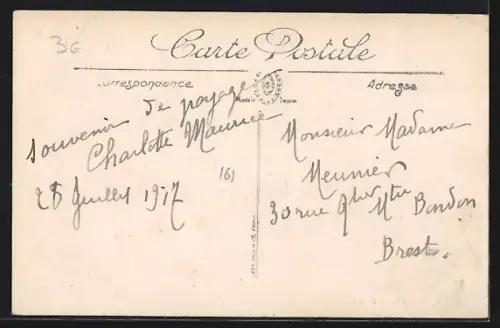 36
Carte Postale
Correspondance
Adresse
Souvenir de voyage
Charlotte Maurice
28 Juillet 1917
161
Monsieur Madame
Meunier
30 rue
Brest.